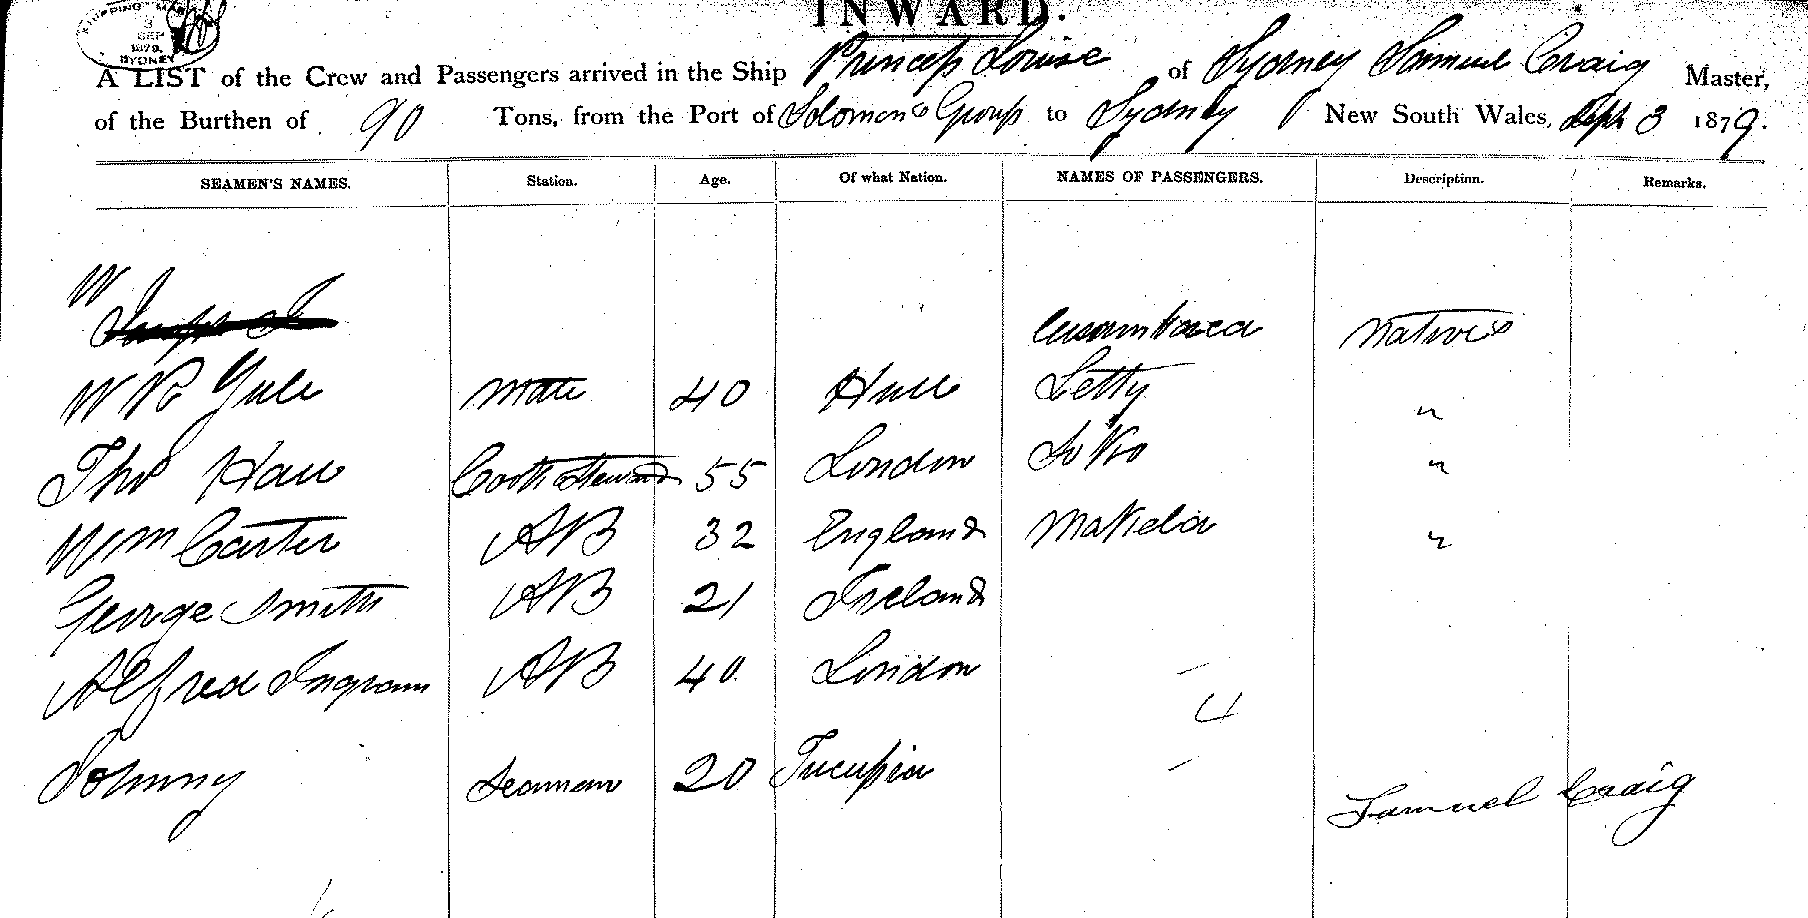 SHIPPING MAS
3
SEP
1879
SYDNEY
INWARD.
A LIST of the Crew and Passengers arrived in the Ship Princess Louise of Sydney Samuel Craig Master,
of the Burthen of 90 Tons, from the Port of Solomons Group to Sydney New South Wales, Sept 3 1879.
SEAMEN'S NAMES. Station. Age. Of what Nation. NAMES OF PASSENGERS. Description. Remarks.
W
Natives
W R Yule Mate 40 Hull Letty "
Thos Hall Cook & Steward 55 London "
Wm Carter AB 32 England Makeda "
George Smith AB 21 Ireland
Alfred Ingram AB 40 London
4
Johnny Seaman 20 Tucupia
Samuel Craig